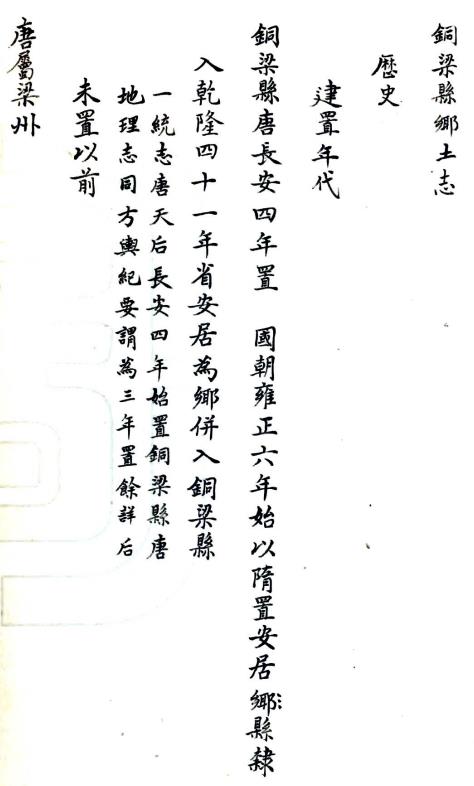 銅梁縣鄉土志
歷史
建置年代
銅梁縣唐長安四年置　國朝雍正六年始以隋置安居鄉縣隸
入乾隆四十一年省安居為鄉併入銅梁縣
一統志唐天后長安四年始置銅梁縣唐
地理志同方輿紀要謂為三年置餘詳后
未置以前
唐屬梁州